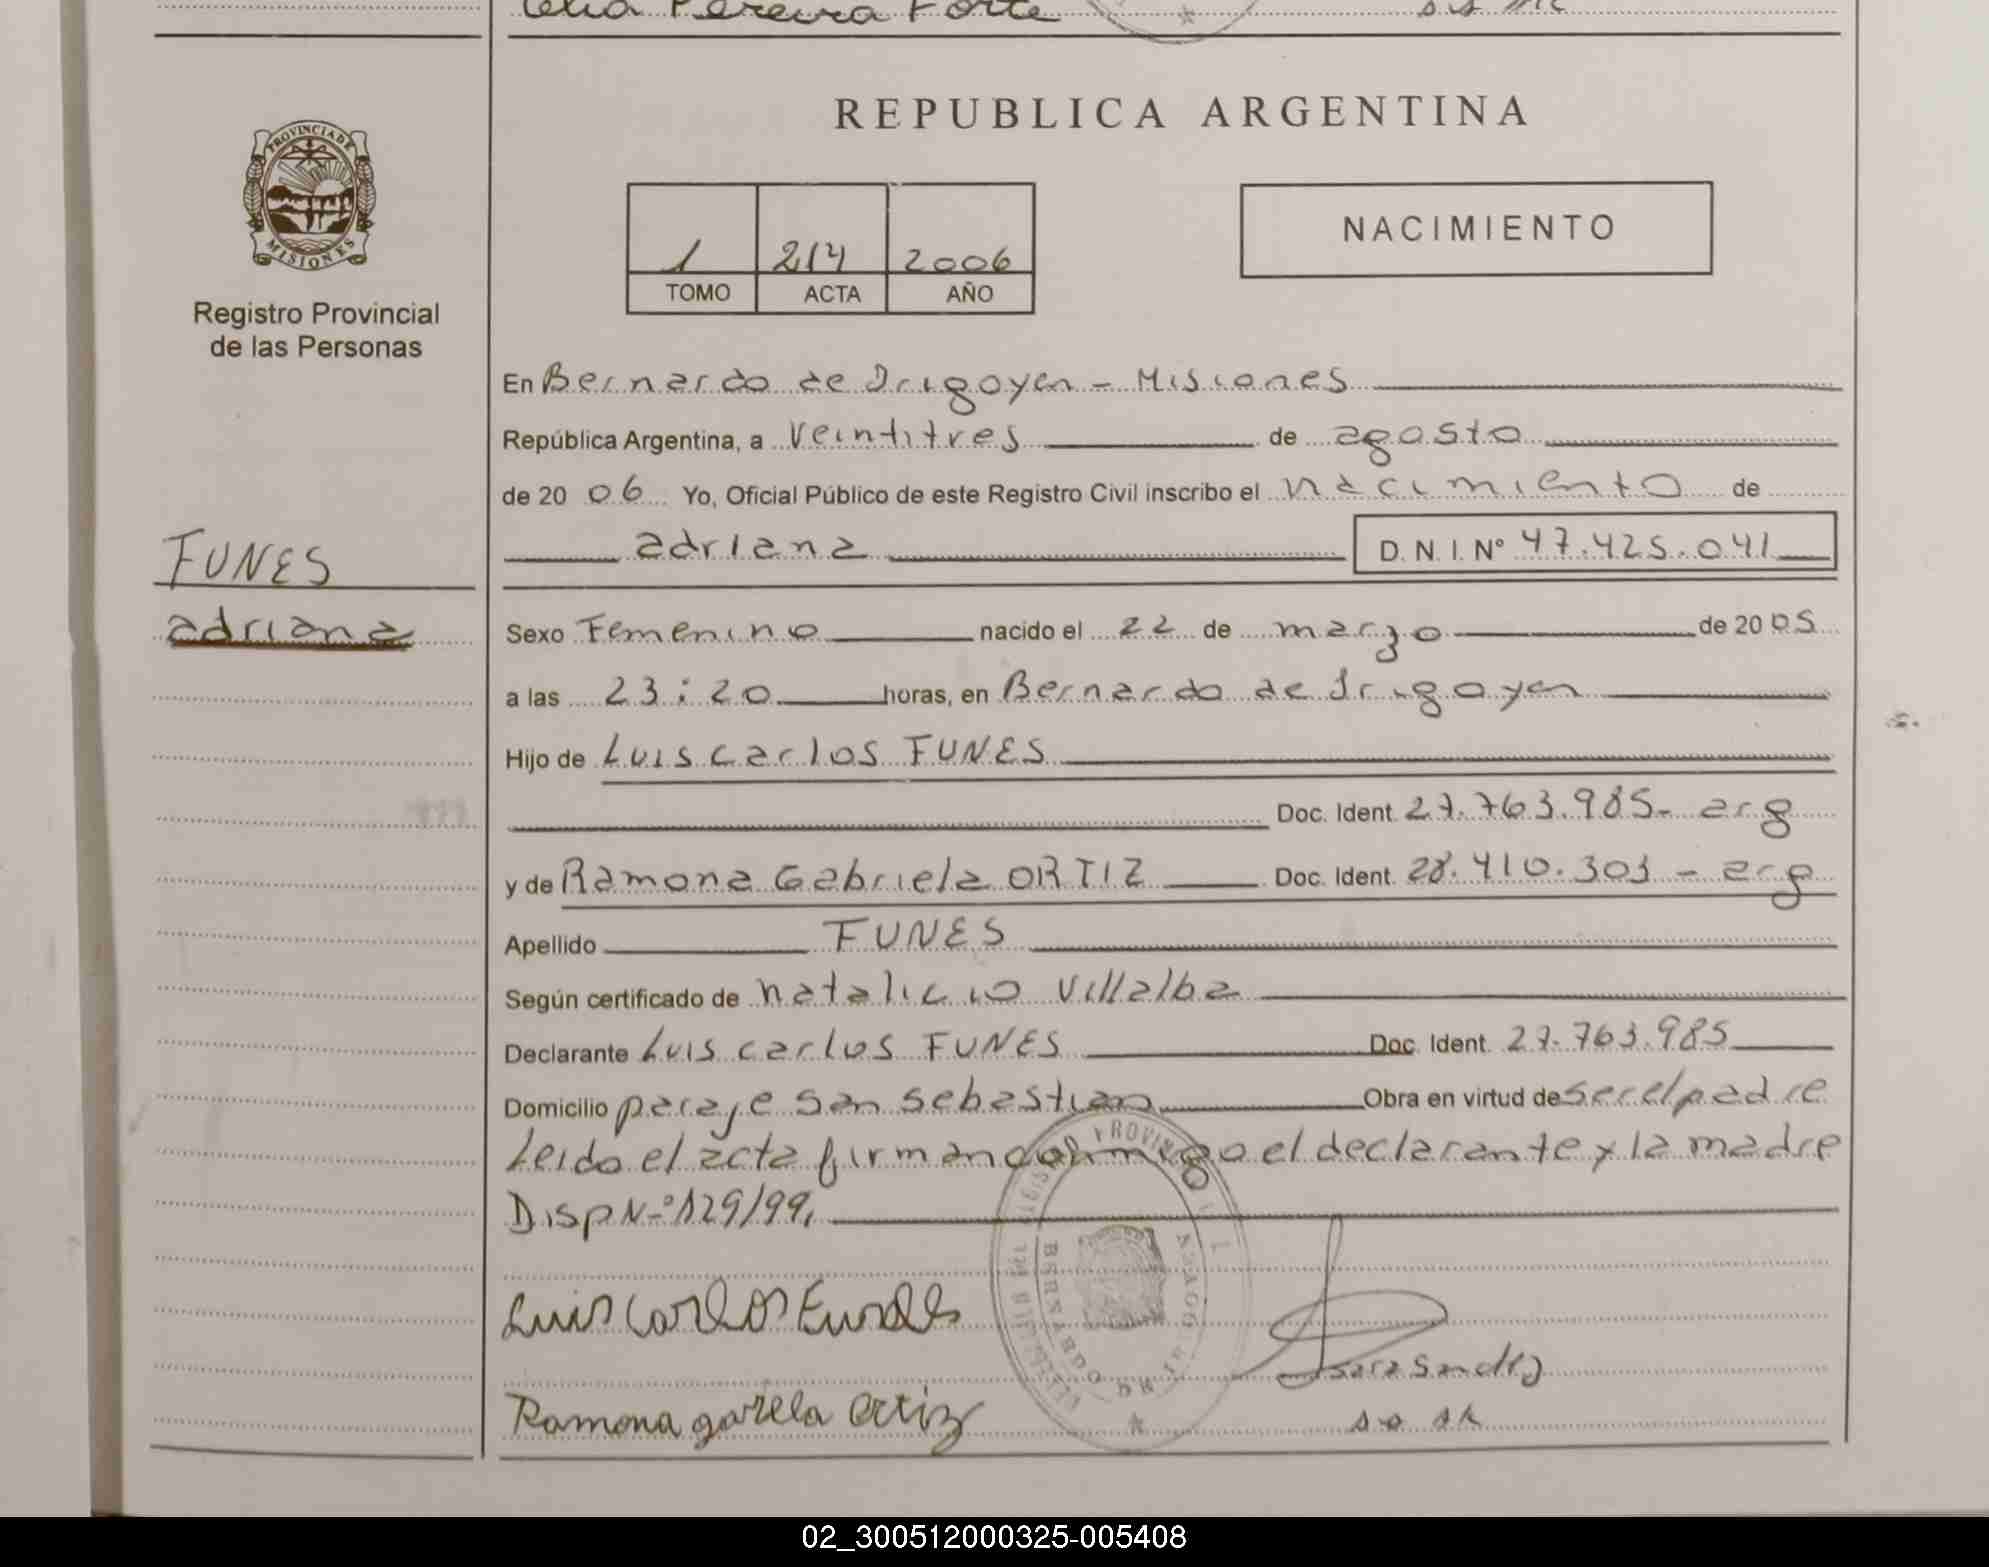 Celia Pereira Forte
REPUBLICA ARGENTINA
PROVINCIA DE
MISIONES
Registro Provincial
de las Personas
1 214 2006
TOMO ACTA AÑO
NACIMIENTO
En Bernardo de Irigoyen - Misiones
República Argentina, a veintitres de agosto
de 20 06 Yo, Oficial Público de este Registro Civil inscribo el nacimiento de
adriana D. N. I. Nº 47.425.041
FUNES
adriana
Sexo Femenino nacido el 22 de marzo de 20 05
a las 23:20 horas, en Bernardo de Irigoyen
Hijo de Luis Carlos FUNES
Doc. Ident. 27.763.985- arg
y de Ramona Gabriela ORTIZ Doc. Ident. 28.410.303 - arg
Apellido FUNES
Según certificado de natalicio Villalba
Declarante Luis carlos FUNES Doc. Ident. 27.763.985
Domicilio paraje san sebastian Obra en virtud de ser el padre
Leido el acta firman conmigo el declarante y la madre
Disp N-º 129/99,
Luis Carlos Funes
Ramona garela Ortiz
BERNARDO DE IRIGOYEN
02_300512000325-005408